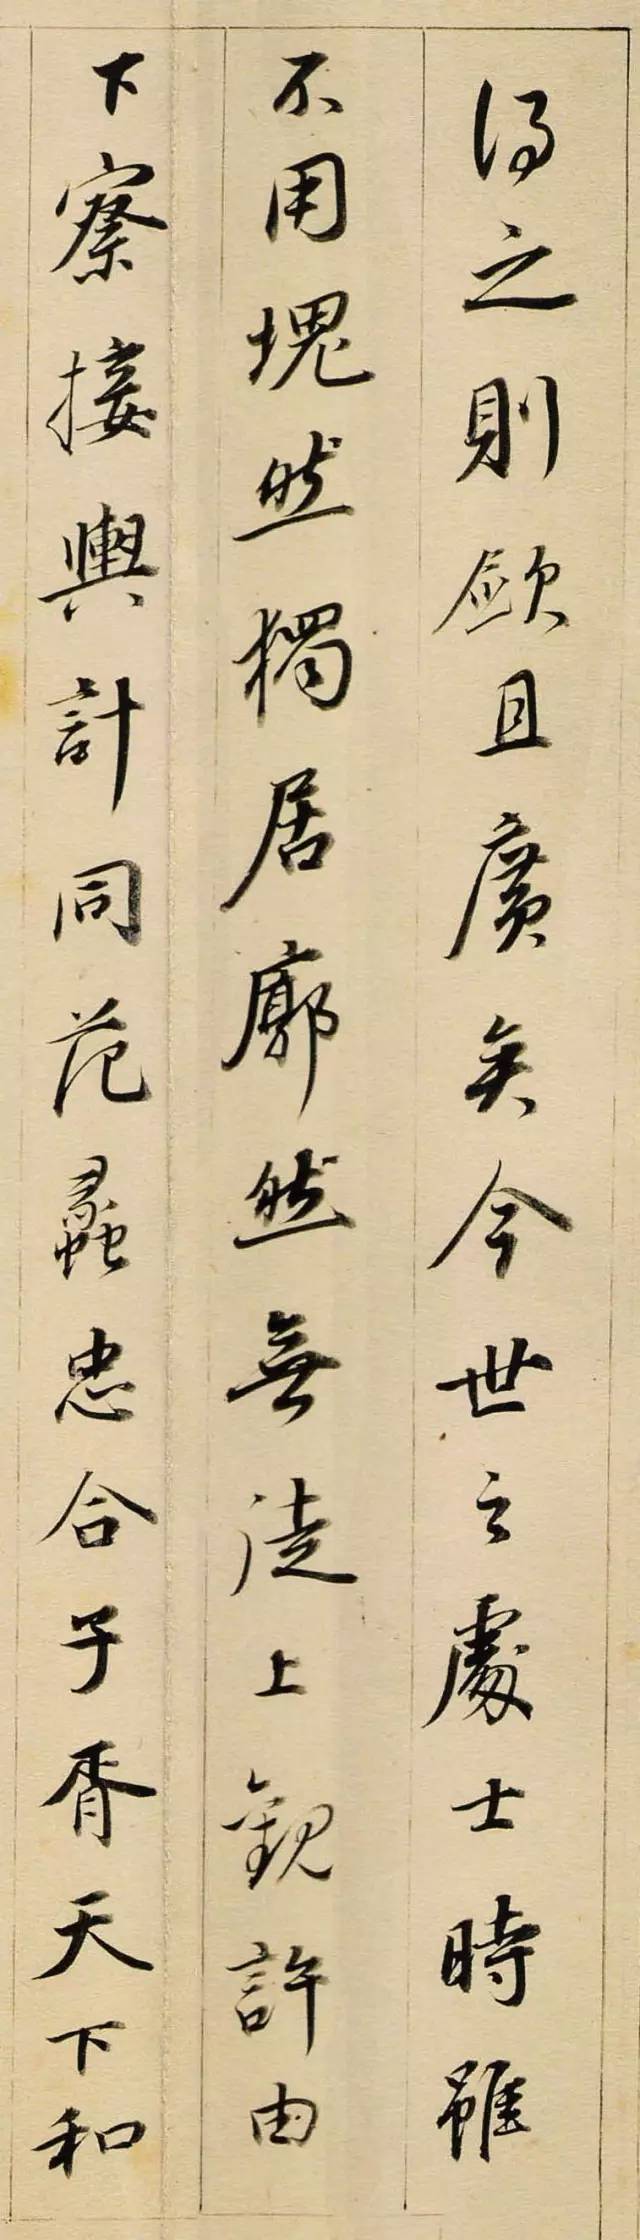 得之則敏且廣矣今世之處士時雖
不用塊然獨居廓然無徒上觀許由
下察接輿計同范蠡忠合子胥天下和